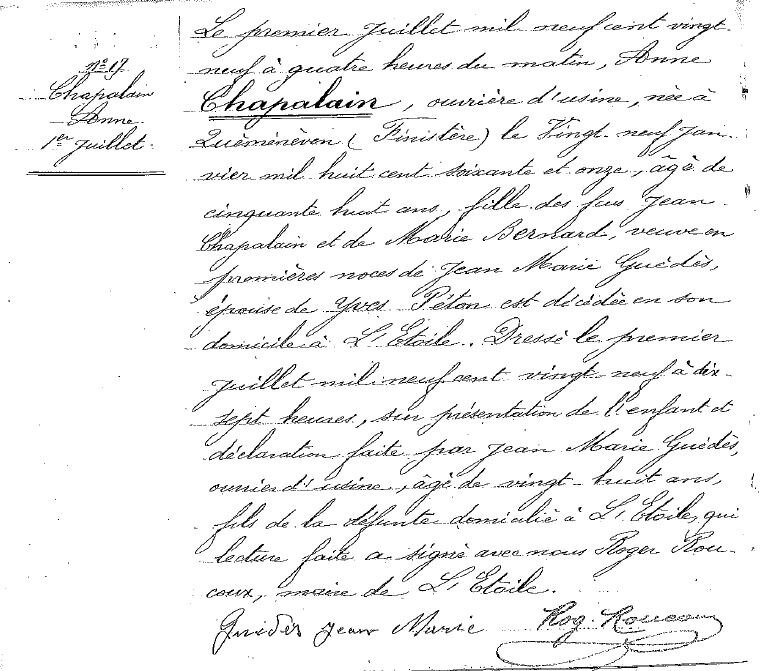 N° 17
Chapalain
Anne
1er Juillet
Le premier Juillet mil neuf cent vingt
neuf à quatre heures du matin, Anne
Chapalain, ouvrière d'usine, née à
Quéménéven (Finistère) le Vingt-neuf Jan-
vier mil huit cent soixante et onze, âgé de
cinquante huit ans, fille des feus Jean
Chapalain et de Marie Bernard, veuve en
premières noces de Jean Marie Guédès,
épouse de Yves Péton est décédée en son
domicile à L'Etoile. Dressé le premier
Juillet mil neuf cent vingt-neuf à dix-
sept heures, sur présentation de l'enfant et
déclaration faite par Jean Marie Guédès,
ouvrier d'usine, âgé de vingt-huit ans,
fils de la défunte domicilié à L'Etoile, qui
lecture faite a signé avec nous Roger Rou-
coux, maire de L'Etoile.
Guédès Jean Marie Rog. Roucoux